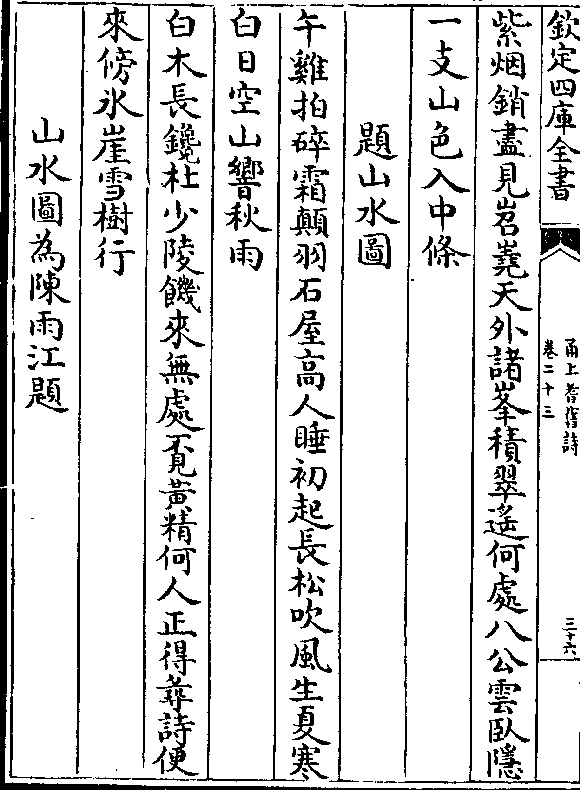 欽定四庫全書
甬上耆舊詩
卷二十三
三十六
紫烟銷盡見岧嶤天外諸峯積翠遙何處八公雲臥隱
一支山色入中條
題山水圖
午雞拍碎霜顛羽石屋高人睡初起長松吹風生夏寒
白日空山響秋雨
白木長鑱杜少陵饑來無處覔黃精何人正得尋詩便
來傍氷崖雪樹行
山水圖為陳雨江題